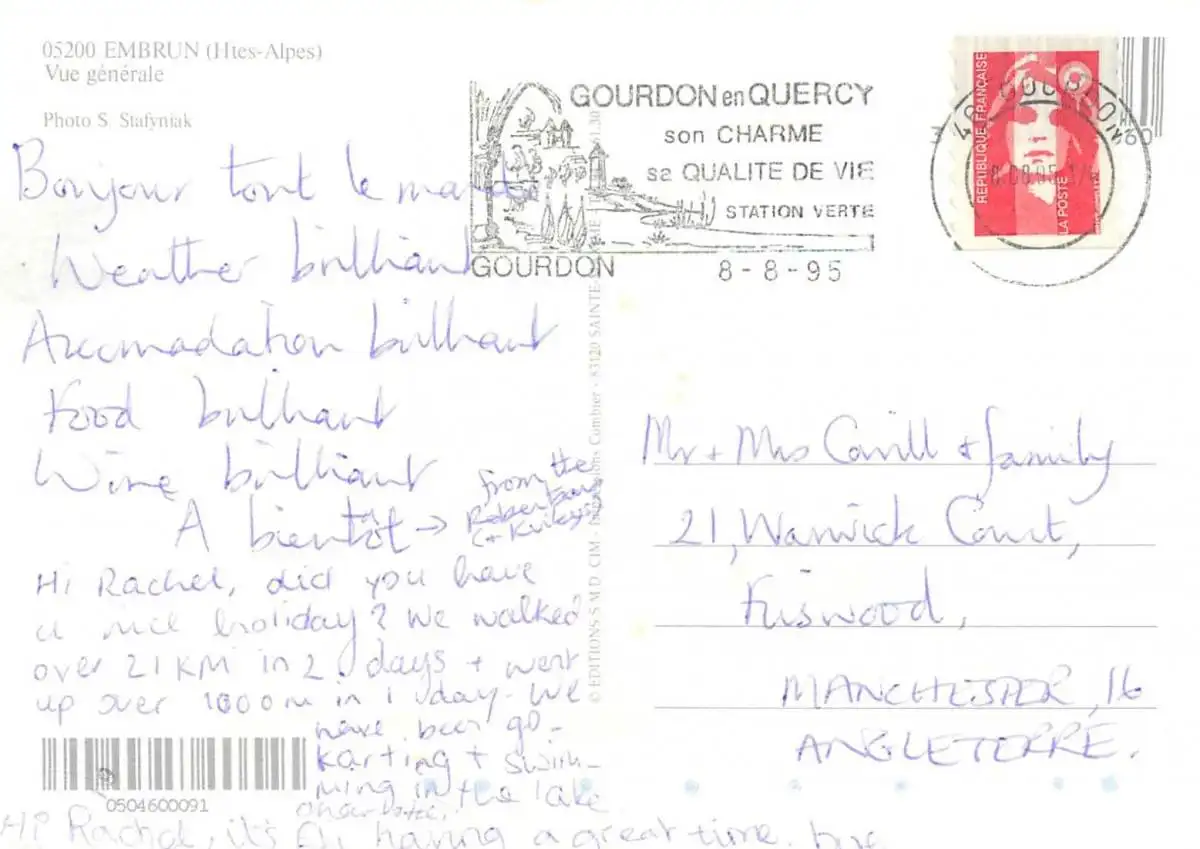 05200 EMBRUN (Htes-Alpes)
Vue générale
Photo S. Stafyniak
Bonjour tout le monde
Weather brilliant
Accomadation brilliant
Food brilliant
Wine brilliant
A bientôt → from the
Robertsons
(+ 
Hi Rachel, did you have
a nice holiday? We walked
over 21 KM in 2 days + went
up over 1000m in 1 day. We
have been go-
karting + swim-
ming in the lake
Charlotte.
Hi Rachel, it's Eli having a great time. bye
0504600091
© EDITIONS S.M.D. CIM - Combier - 83120 SAINTE-
GOURDON en QUERCY
son CHARME
sa QUALITE DE VIE
STATION VERTE
GOURDON 8-8-95
46 GOURDON
REPUBLIQUE FRANÇAISE
LA POSTE
Mr + Mrs Cavill + family
21, Warwick Court,
Firswood,
MANCHESTER, 16
ANGLETERRE.